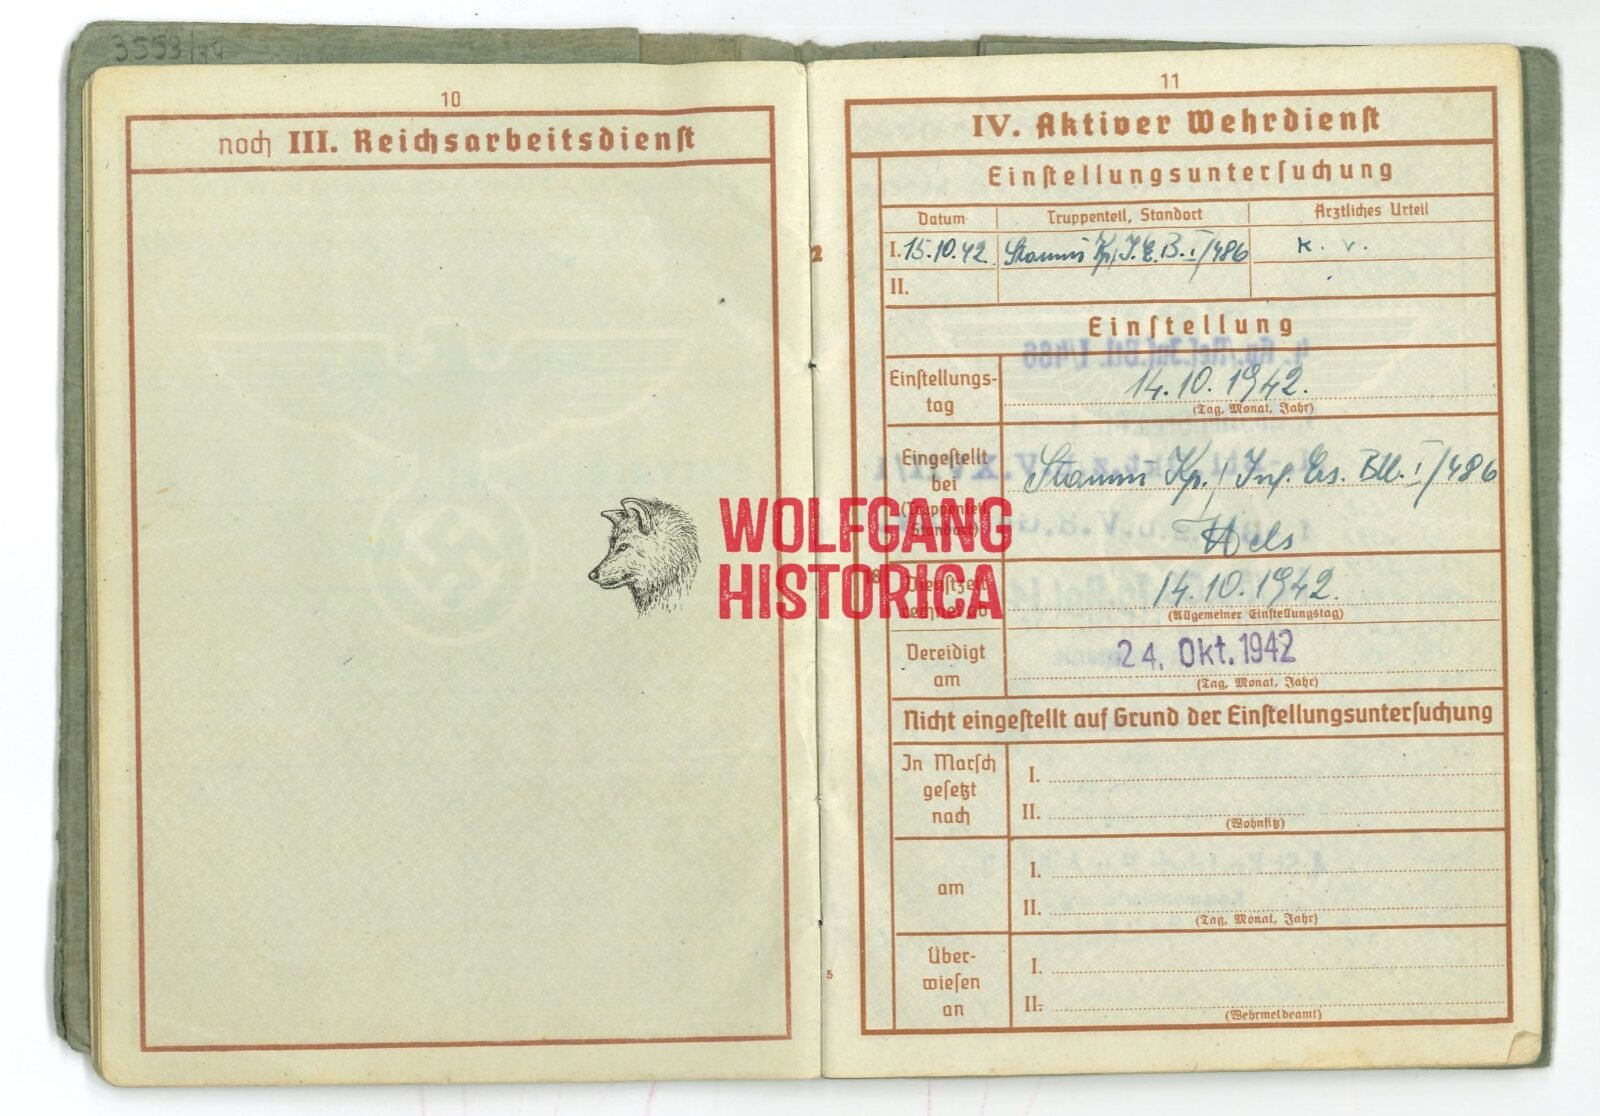 3553/
10
noch III. Reichsarbeitsdienst
11
IV. Aktiver Wehrdienst
Einstellungsuntersuchung
Datum Truppenteil, Standort Ärztliches Urteil
I. 15.10.42. Stamm Kp./J.E.B. I/486 k. v.
II.
Einstellung
4. Kp./Res.Inf.Btl. I/486
Einstellungs-
tag
14.10.1942.
(Tag, Monat, Jahr)
Eingestellt
bei
(Truppenteil,
Standort)
Stamm Kp./Inf. Ers. Btl. I/486
Wels
WOLFGANG
HISTORICA
Dienstzeit
rechnet ab
14.10.1942.
(Allgemeiner Einstellungstag)
Vereidigt
am
24. Okt. 1942
(Tag, Monat, Jahr)
Nicht eingestellt auf Grund der Einstellungsuntersuchung
In Marsch
gesetzt
nach
I.
II.
(Wohnsitz)
am
I.
II.
(Tag, Monat, Jahr)
Über-
wiesen
an
I.
II.
(Wehrmeldeamt)
5